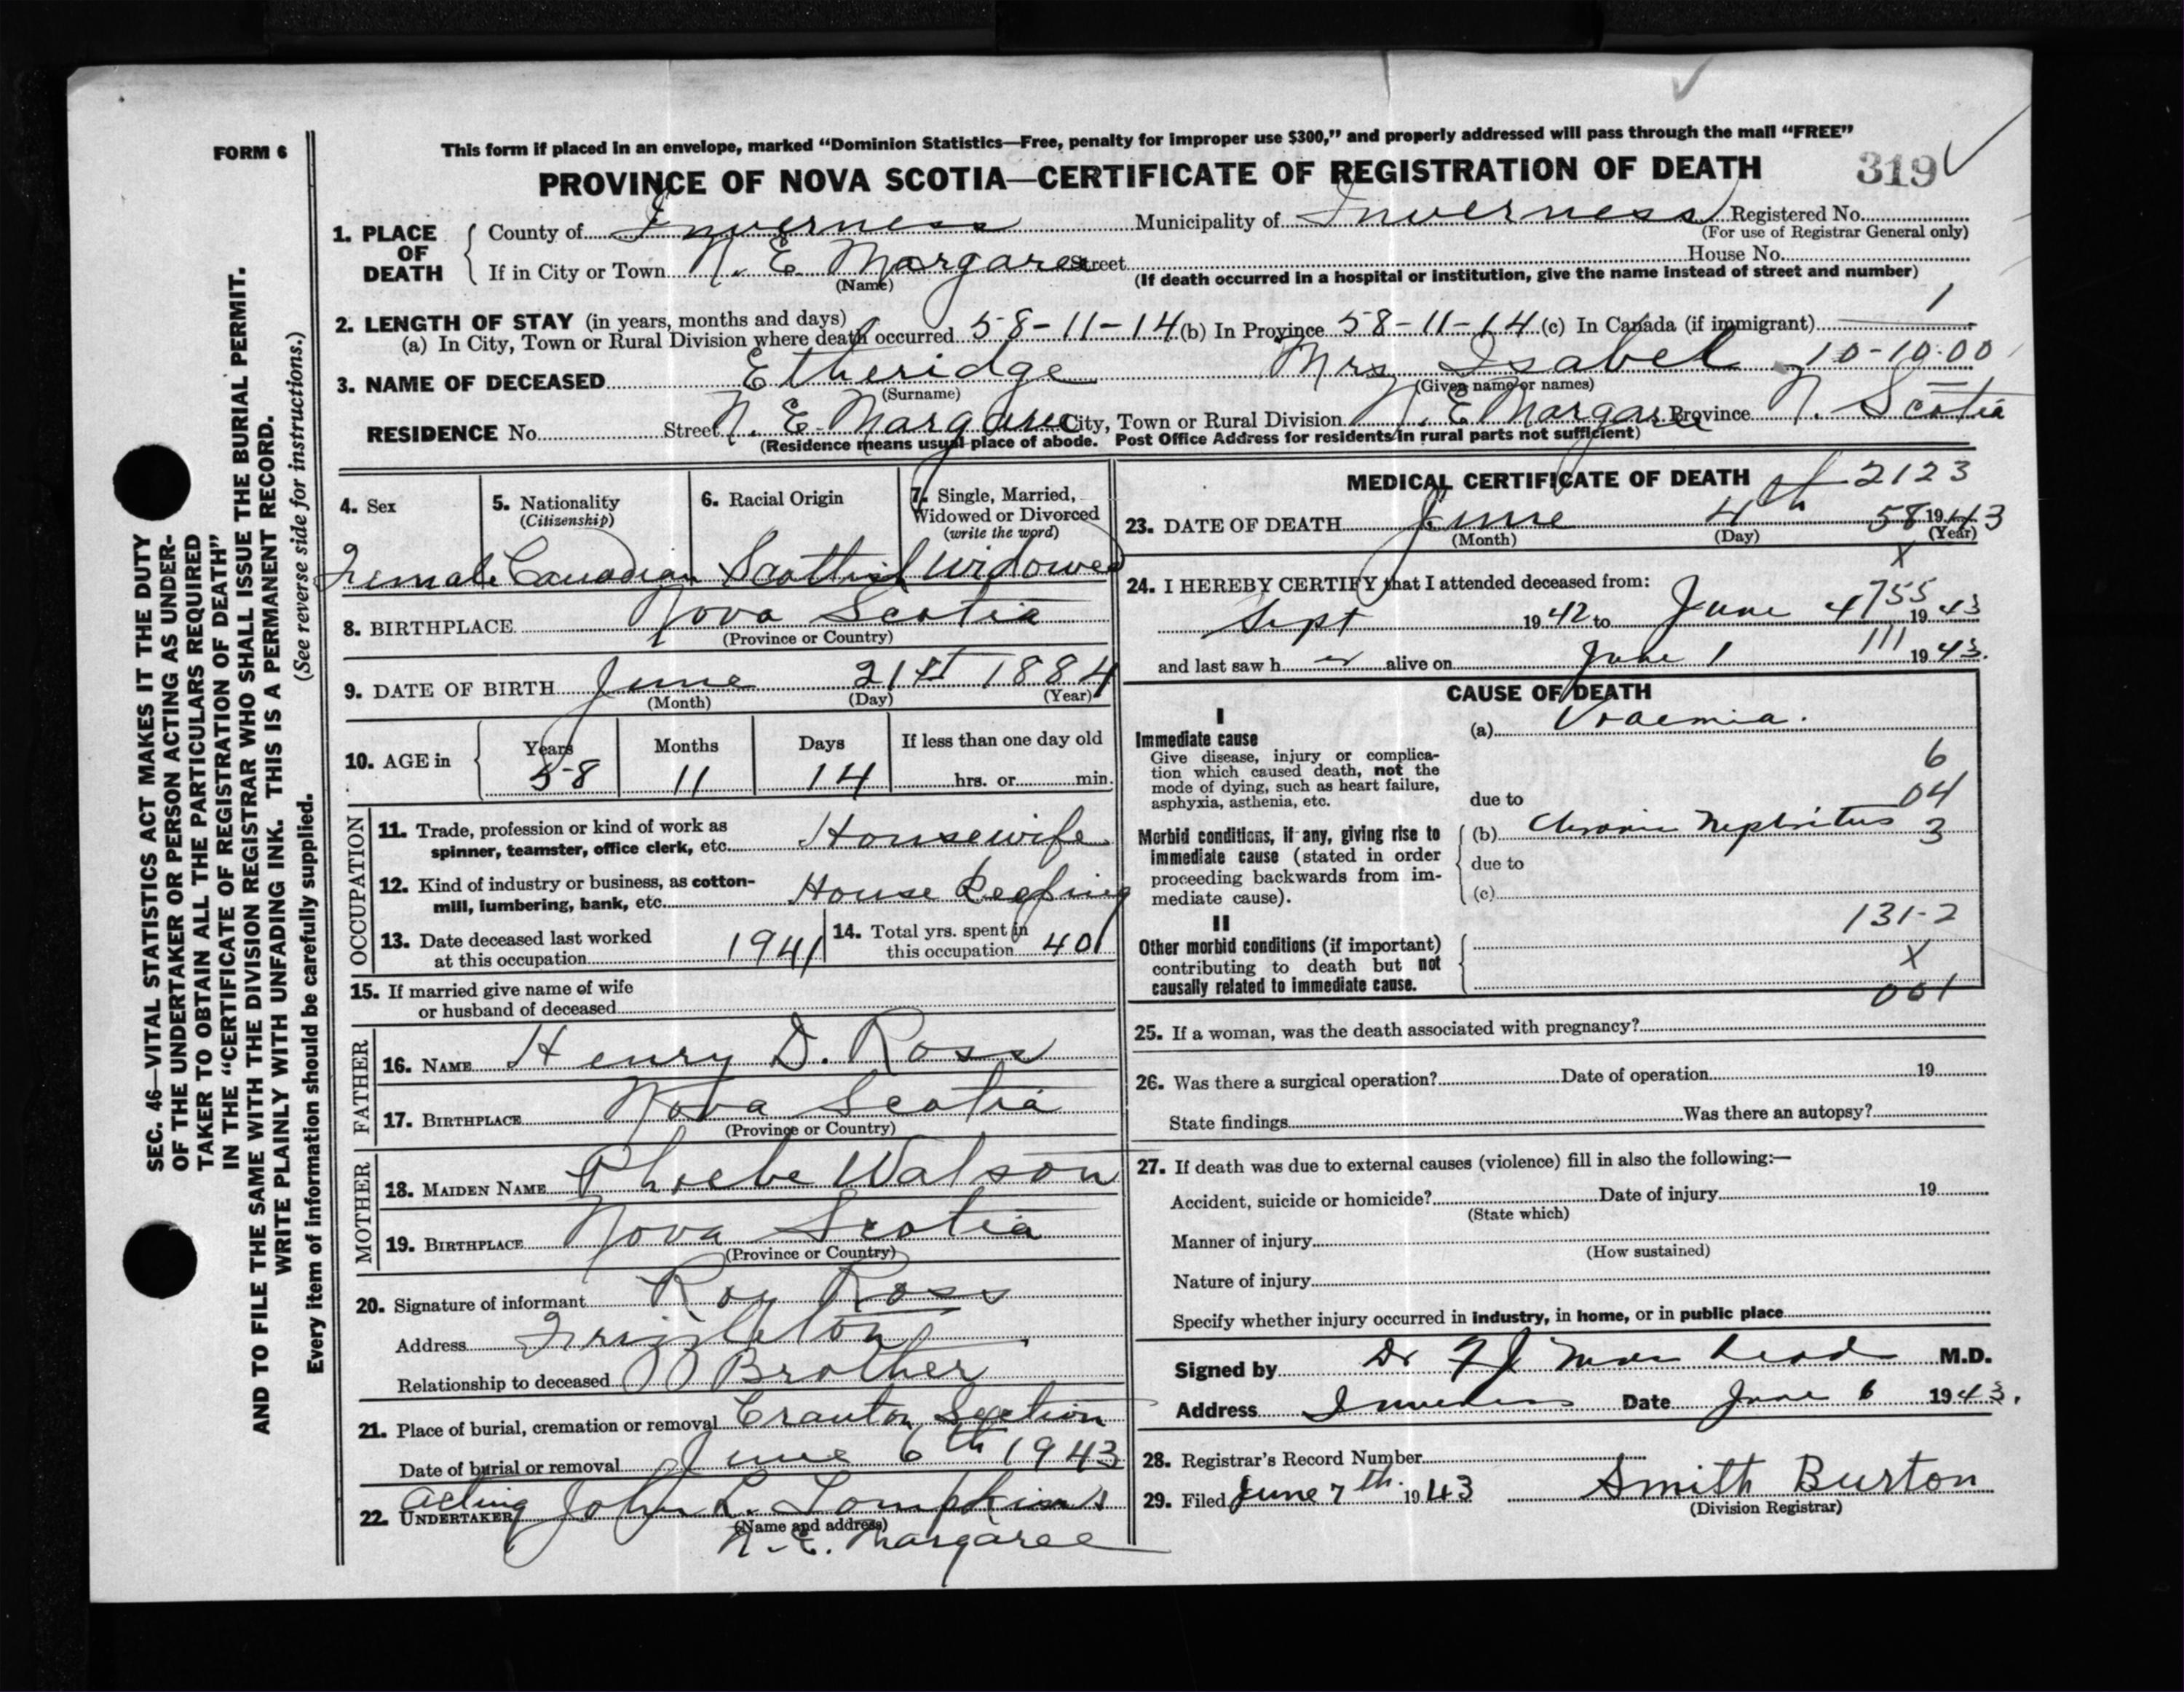 FORM 6
This form if placed in an envelope, marked “Dominion Statistics—Free, penalty for improper use $300,” and properly addressed will pass through the mail “FREE”
PROVINCE OF NOVA SCOTIA—CERTIFICATE OF REGISTRATION OF DEATH
319
SEC. 46—VITAL STATISTICS ACT MAKES IT THE DUTY
OF THE UNDERTAKER OR PERSON ACTING AS UNDER-
TAKER TO OBTAIN ALL THE PARTICULARS REQUIRED
IN THE “CERTIFICATE OF REGISTRATION OF DEATH”
AND TO FILE THE SAME WITH THE DIVISION REGISTRAR WHO SHALL ISSUE THE BURIAL PERMIT.
WRITE PLAINLY WITH UNFADING INK. THIS IS A PERMANENT RECORD.
Every item of information should be carefully supplied. (See reverse side for instructions.)
1. PLACE OF DEATH
County of Inverness Municipality of Inverness Registered No.
(For use of Registrar General only)
If in City or Town N. E. Margaree Street House No.
(Name) (If death occurred in a hospital or institution, give the name instead of street and number)
2. LENGTH OF STAY (in years, months and days)
(a) In City, Town or Rural Division where death occurred 58-11-14 (b) In Province 58-11-14 (c) In Canada (if immigrant)
1
3. NAME OF DECEASED Etheridge Mrs Isabel 10-10-00
(Surname) (Given name or names)
RESIDENCE No. Street N. E. Margaree City, Town or Rural Division N. E Margaree Province N. Scotia
(Residence means usual place of abode. Post Office Address for residents in rural parts not sufficient)
4. Sex
Female
5. Nationality
(Citizenship)
Canadian
6. Racial Origin
Scottish
7. Single, Married,
Widowed or Divorced
(write the word)
Widowed
8. BIRTHPLACE Nova Scotia
(Province or Country)
9. DATE OF BIRTH June 21st 1884
(Month) (Day) (Year)
10. AGE in
Years Months Days If less than one day old
58 11 14 hrs. or min.
OCCUPATION
11. Trade, profession or kind of work as
spinner, teamster, office clerk, etc. Housewife
12. Kind of industry or business, as cotton-
mill, lumbering, bank, etc. House Keeping
13. Date deceased last worked
at this occupation 1941
14. Total yrs. spent in
this occupation 40
15. If married give name of wife
or husband of deceased
FATHER
16. NAME Henry D. Ross
17. BIRTHPLACE Nova Scotia
(Province or Country)
MOTHER
18. MAIDEN NAME Phoebe Watson
19. BIRTHPLACE Nova Scotia
(Province or Country)
20. Signature of informant Roy Ross
Address
Relationship to deceased Brother
21. Place of burial, cremation or removal Cranton Section
Date of burial or removal June 6th 1943
22. Acting UNDERTAKER John L. Tompkins
(Name and address)
N. E. Margaree
MEDICAL CERTIFICATE OF DEATH
2123
23. DATE OF DEATH June 4th 1943
58
(Month) (Day) (Year)
X
24. I HEREBY CERTIFY that I attended deceased from:
755
Sept 1942 to June 4 1943
111
and last saw her alive on June 1 1943.
CAUSE OF DEATH
I
Immediate cause
Give disease, injury or complica-
tion which caused death, not the
mode of dying, such as heart failure,
asphyxia, asthenia, etc.
(a) Uraemia.
6
due to
04
Morbid conditions, if any, giving rise to
immediate cause (stated in order
proceeding backwards from im-
mediate cause).
(b) Chronic Nephritus
3
due to
(c)
131-2
II
Other morbid conditions (if important)
contributing to death but not
causally related to immediate cause.
X
001
25. If a woman, was the death associated with pregnancy?
26. Was there a surgical operation? Date of operation 19
State findings Was there an autopsy?
27. If death was due to external causes (violence) fill in also the following:—
Accident, suicide or homicide? Date of injury 19
(State which)
Manner of injury
(How sustained)
Nature of injury
Specify whether injury occurred in industry, in home, or in public place
Signed by Dr M.D.
Address Inverness Date June 6 1943.
28. Registrar's Record Number
29. Filed June 7th 1943 Smith Burton
(Division Registrar)